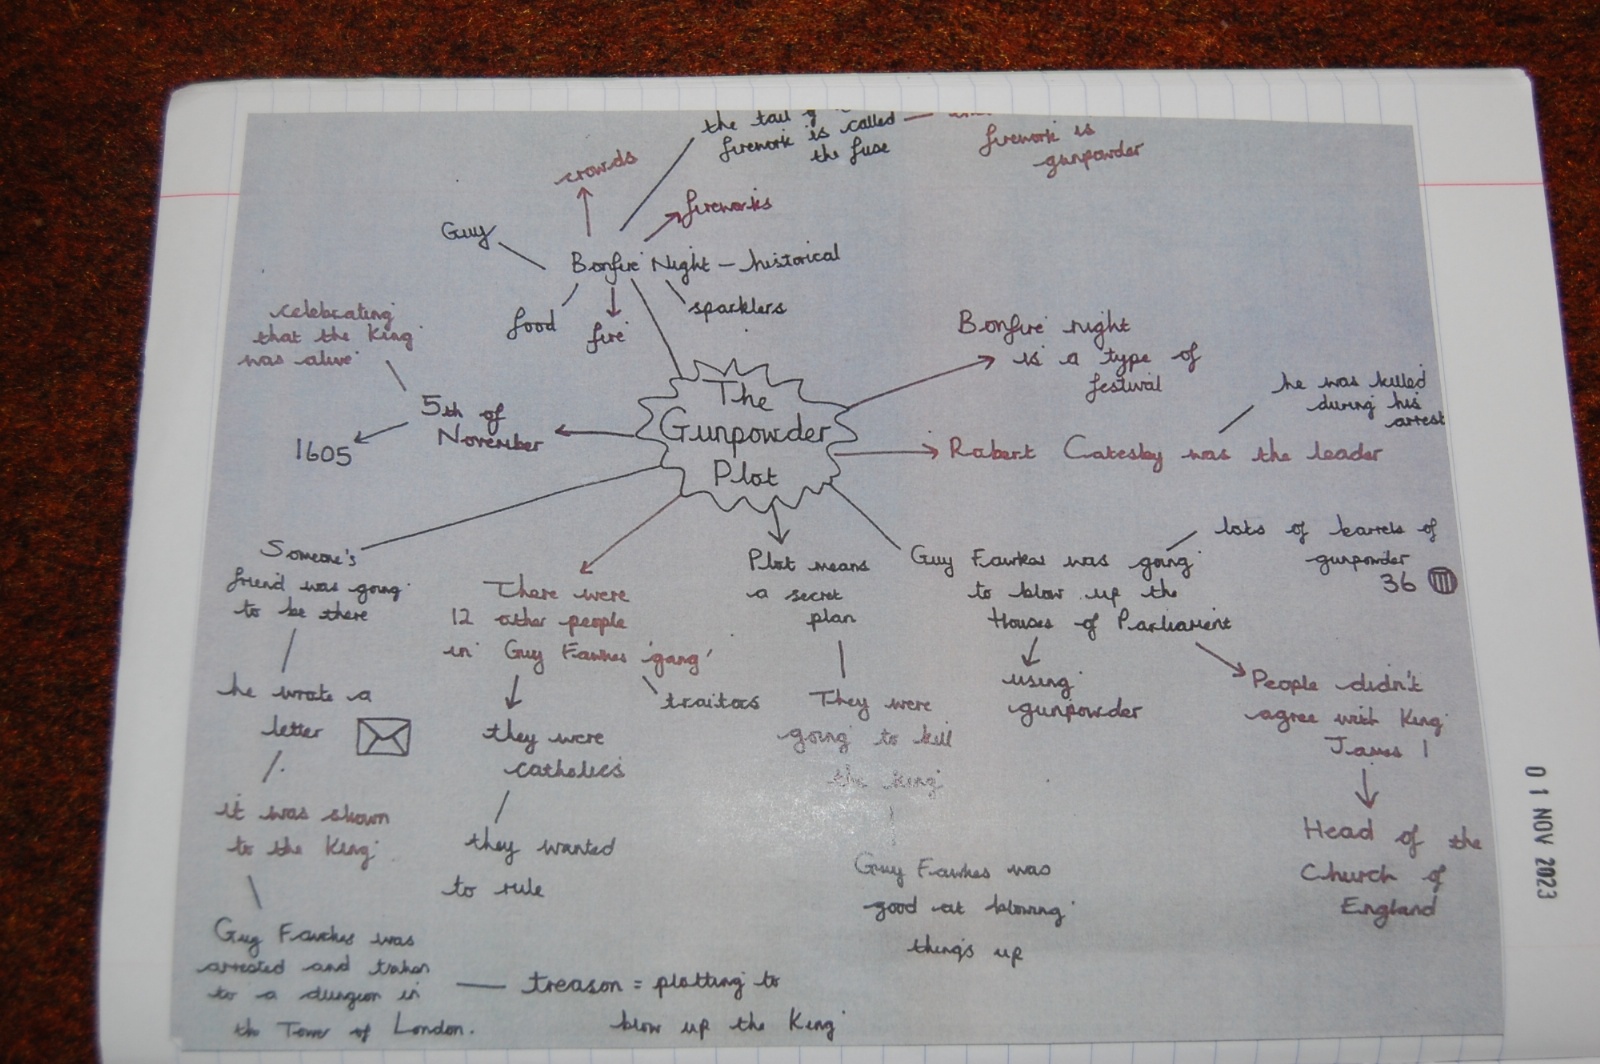 the tail of
firework is called
the fuse
firework is
gunpowder
crowds
fireworks
Guy
Bonfire Night – historical
food
fire
sparklers
celebrating
that the King
was alive
5th of
November
1605
The
Gunpowder
Plot
Bonfire night
is a type of
festival
he was killed
during his
arrest
Robert Catesby was the leader
Someone's
friend was going
to be there
he wrote a
letter
it was shown
to the King
Guy Fawkes was
arrested and taken
to a dungeon in
the Tower of London.
treason = plotting to
blow up the King
There were
12 other people
in Guy Fawkes 'gang'
traitors
they were
catholics
they wanted
to rule
Plot means
a secret
plan
They were
going to kill
the king
Guy Fawkes was
good at blowing
things up
Guy Fawkes was going
to blow up the
Houses of Parliament
lots of barrels of
gunpowder
36
using
gunpowder
People didn't
agree with King
James 1
Head of the
Church of
England
01 NOV 2023